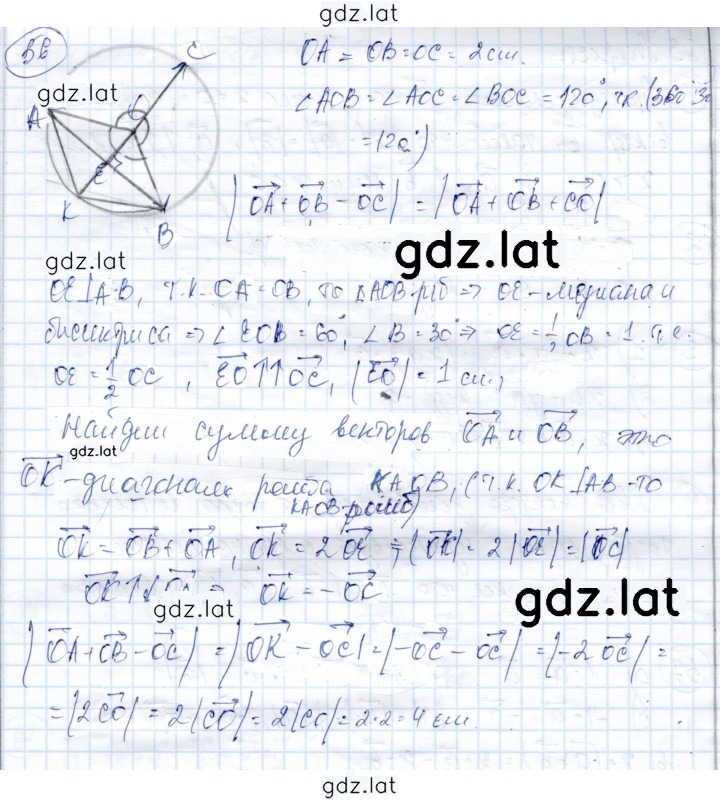 gdz.lat
36
C
A
O
E
K
B
OA = OB = OC = 2 см.
gdz.lat
∠AOB = ∠AOC = ∠BOC = 120°, т.к. (360°:3
= 120°)
|OA + OB − OC| = |OA + OB + CO|
gdz.lat
gdz.lat
OE⊥AB, т.к. OA = OB, то △AOB - р/б => OE - медиана и
биссиктриса => ∠EOB = 60°, ∠B = 30° => OE = 1/2 OB = 1. т.е.
OE = 1/2 OC, EO↑↑OC, |EO| = 1 см,
Найдём сумму векторов OA и OB, это
gdz.lat
OK - диагональ ромба KAOB, (т.к. OK⊥AB - то
KAOB - ромб)
OK = OB + OA, OK = 2 OE ; |OK| = 2|OE| = |OC|
OK↑↓ => OK = − OC
gdz.lat
gdz.lat
|OA + OB − OC| = |OK − OC| = |−OC − OC| = |−2 OC| =
= |2CO| = 2|CO| = 2|CO| = 2·2 = 4 см.
gdz.lat